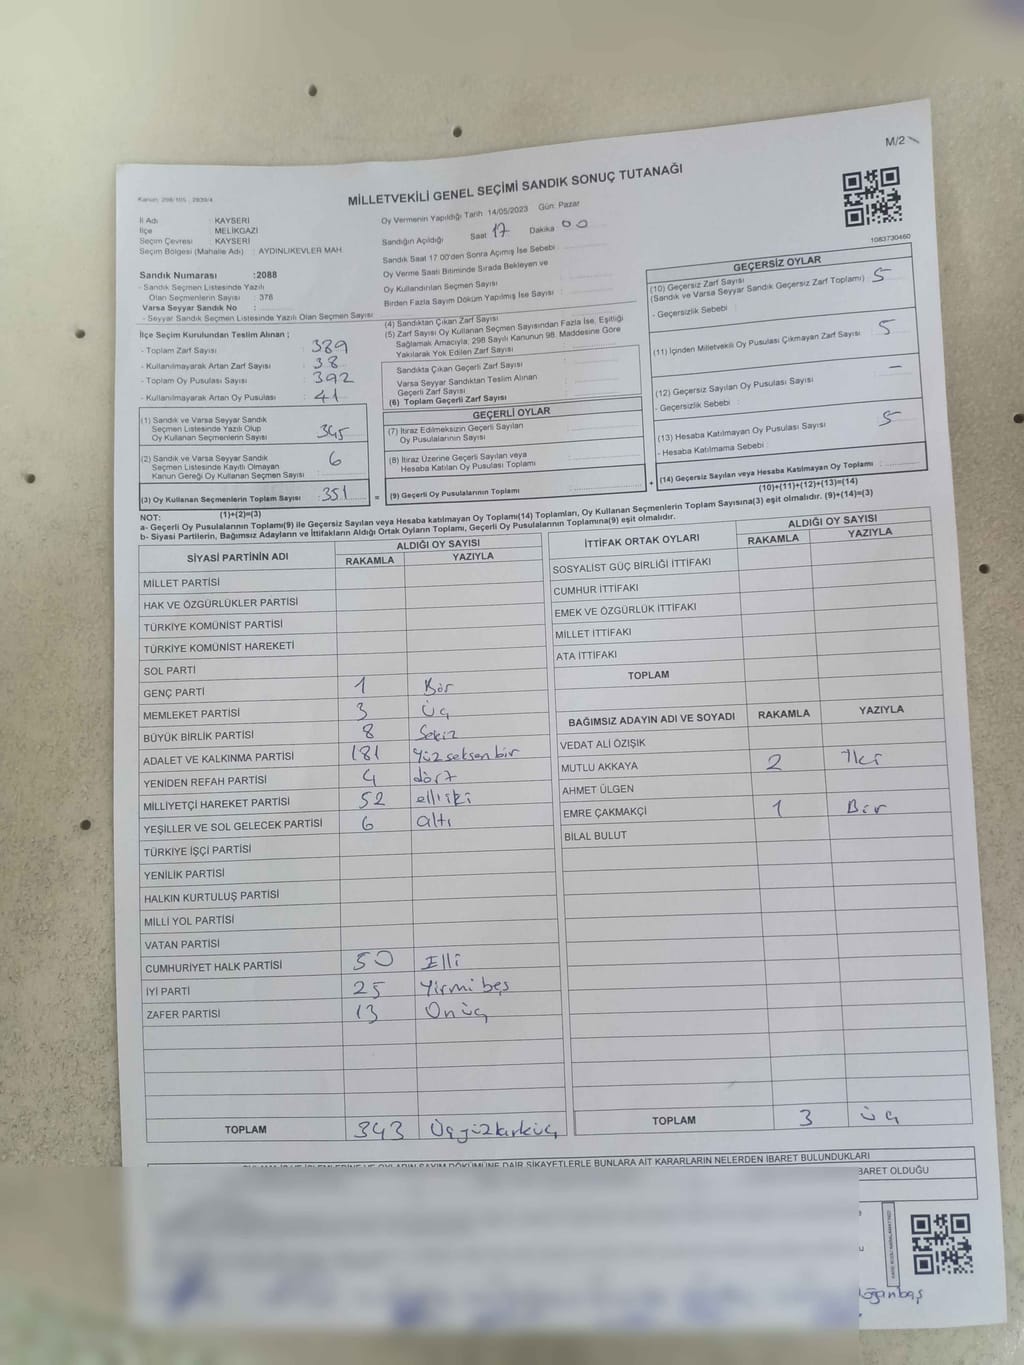 M/2
Kanun: 298/105 , 2839/4
MİLLETVEKİLİ GENEL SEÇİMİ SANDIK SONUÇ TUTANAĞI
1083730460
İl Adı : KAYSERİ
İlçe : MELİKGAZİ
Seçim Çevresi : KAYSERİ
Seçim Bölgesi (Mahalle Adı) : AYDINLIKEVLER MAH
Sandık Numarası :2088
- Sandık Seçmen Listesinde Yazılı
Olan Seçmenlerin Sayısı : 378
Varsa Seyyar Sandık No :
- Seyyar Sandık Seçmen Listesinde Yazılı Olan Seçmen Sayısı
İlçe Seçim Kurulundan Teslim Alınan ;
- Toplam Zarf Sayısı : 389
- Kullanılmayarak Artan Zarf Sayısı : 38
- Toplam Oy Pusulası Sayısı : 392
- Kullanılmayarak Artan Oy Pusulası : 41
(1) Sandık ve Varsa Seyyar Sandık
Seçmen Listesinde Yazılı Olup
Oy Kullanan Seçmenlerin Sayısı : 345
(2) Sandık ve Varsa Seyyar Sandık
Seçmen Listesinde Kayıtlı Olmayan
Kanun Gereği Oy Kullanan Seçmen Sayısı : 6
(3) Oy Kullanan Seçmenlerin Toplam Sayısı : 351
(1)+(2)=(3)
Oy Vermenin Yapıldığı Tarih 14/05/2023 Gün: Pazar
Sandığın Açıldığı Saat 17 Dakika 00
Sandık Saat 17.00'den Sonra Açımış İse Sebebi
Oy Verme Saati Bitiminde Sırada Bekleyen ve
Oy Kullandırılan Seçmen Sayısı
Birden Fazla Sayım Döküm Yapılmış İse Sayısı
(4) Sandıktan Çıkan Zarf Sayısı
(5) Zarf Sayısı Oy Kullanan Seçmen Sayısından Fazla İse, Eşitliği
Sağlamak Amacıyla, 298 Sayılı Kanunun 98. Maddesine Göre
Yakılarak Yok Edilen Zarf Sayısı
Sandıkta Çıkan Geçerli Zarf Sayısı
Varsa Seyyar Sandıktan Teslim Alınan
Geçerli Zarf Sayısı
(6) Toplam Geçerli Zarf Sayısı
GEÇERLİ OYLAR
(7) İtiraz Edilmeksizin Geçerli Sayılan
Oy Pusulalarının Sayısı
(8) İtiraz Üzerine Geçerli Sayılan veya
Hesaba Katılan Oy Pusulası Toplamı
= (9) Geçerli Oy Pusulalarının Toplamı
GEÇERSİZ OYLAR
(10) Geçersiz Zarf Sayısı
(Sandık ve Varsa Seyyar Sandık Geçersiz Zarf Toplamı) 5
- Geçersizlik Sebebi :
(11) İçinden Milletvekili Oy Pusulası Çıkmayan Zarf Sayısı 5
(12) Geçersiz Sayılan Oy Pusulası Sayısı : –
- Geçersizlik Sebebi :
(13) Hesaba Katılmayan Oy Pusulası Sayısı 5
- Hesaba Katılmama Sebebi :
+ (14) Geçersiz Sayılan veya Hesaba Katılmayan Oy Toplamı
(10)+(11)+(12)+(13)=(14)
NOT:
a- Geçerli Oy Pusulalarının Toplamı(9) ile Geçersiz Sayılan veya Hesaba katılmayan Oy Toplamı(14) Toplamları, Oy Kullanan Seçmenlerin Toplam Sayısına(3) eşit olmalıdır. (9)+(14)=(3)
b- Siyasi Partilerin, Bağımsız Adayların ve İttifakların Aldığı Ortak Oyların Toplamı, Geçerli Oy Pusulalarının Toplamına(9) eşit olmalıdır.
SİYASİ PARTİNİN ADI ALDIĞI OY SAYISI
RAKAMLA YAZIYLA
MİLLET PARTİSİ
HAK VE ÖZGÜRLÜKLER PARTİSİ
TÜRKİYE KOMÜNİST PARTİSİ
TÜRKİYE KOMÜNİST HAREKETİ
SOL PARTİ
GENÇ PARTİ 1 Bir
MEMLEKET PARTİSİ 3 Üç
BÜYÜK BİRLİK PARTİSİ 8 Sekiz
ADALET VE KALKINMA PARTİSİ 181 Yüz seksen bir
YENİDEN REFAH PARTİSİ 4 dört
MİLLİYETÇİ HAREKET PARTİSİ 52 elliiki
YEŞİLLER VE SOL GELECEK PARTİSİ 6 altı
TÜRKİYE İŞÇİ PARTİSİ
YENİLİK PARTİSİ
HALKIN KURTULUŞ PARTİSİ
MİLLİ YOL PARTİSİ
VATAN PARTİSİ
CUMHURİYET HALK PARTİSİ 50 Elli
İYİ PARTİ 25 Yirmi beş
ZAFER PARTİSİ 13 Onüç
TOPLAM 343 Üçyüzkırküç
İTTİFAK ORTAK OYLARI ALDIĞI OY SAYISI
RAKAMLA YAZIYLA
SOSYALİST GÜÇ BİRLİĞİ İTTİFAKI
CUMHUR İTTİFAKI
EMEK VE ÖZGÜRLÜK İTTİFAKI
MİLLET İTTİFAKI
ATA İTTİFAKI
TOPLAM
BAĞIMSIZ ADAYIN ADI VE SOYADI RAKAMLA YAZIYLA
VEDAT ALİ ÖZIŞIK
MUTLU AKKAYA 2 İki
AHMET ÜLGEN
EMRE ÇAKMAKÇİ 1 Bir
BİLAL BULUT
TOPLAM 3 üç
SAYIM DÖKÜMÜNE DAİR ŞİKAYETLERLE BUNLARA AİT KARARLARIN NELERDEN İBARET BULUNDUKLARI
BARET OLDUĞU